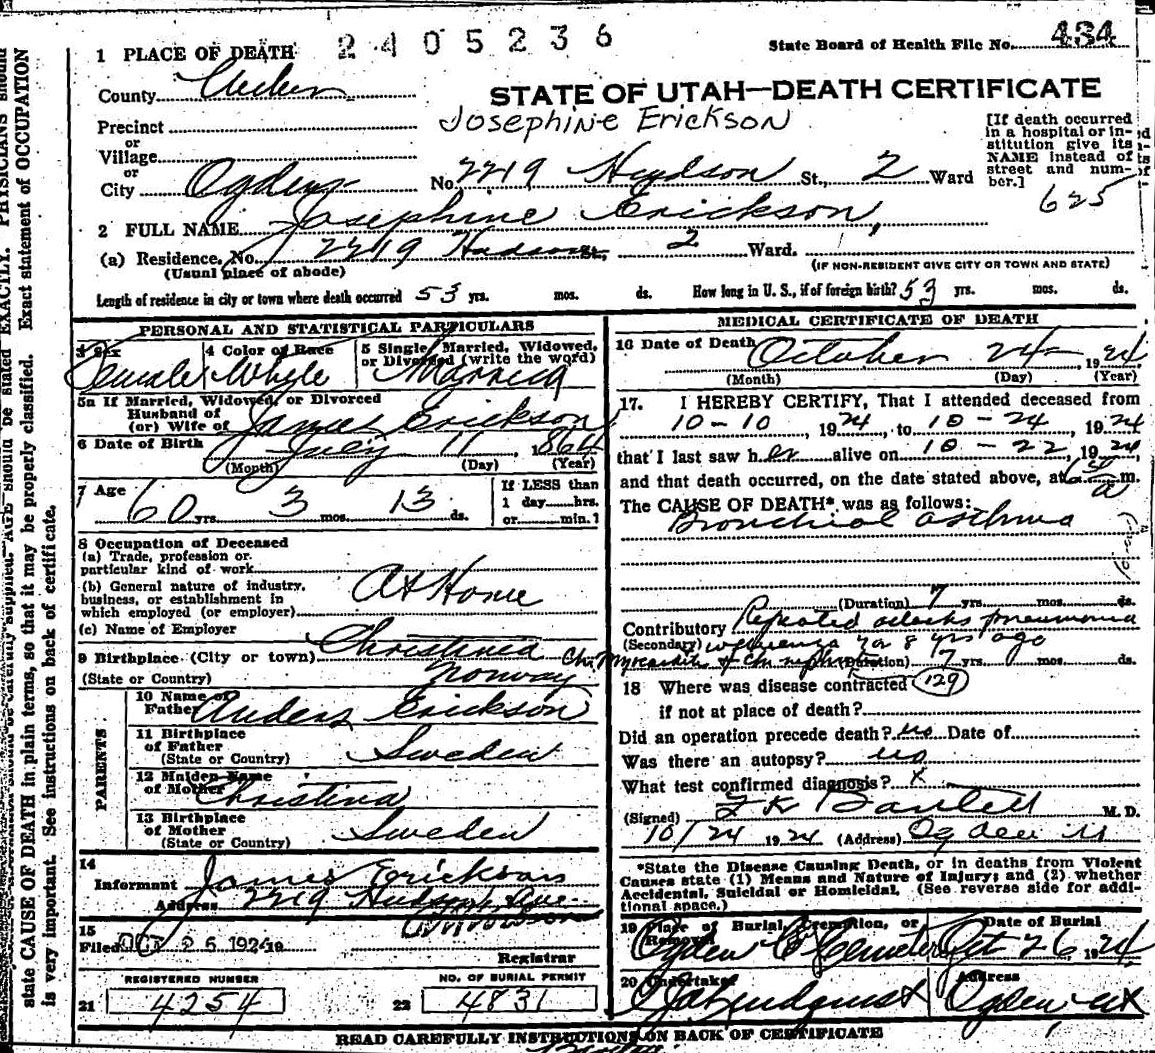 2405236
State Board of Health File No. 434
1 PLACE OF DEATH
County Weber
STATE OF UTAH—DEATH CERTIFICATE
Josephine Erickson
Precinct
or
Village
or
City Ogden No. 2219 Hudson St., 2 Ward
[If death occurred in a hospital or institution give its NAME instead of street and number.]
625
2 FULL NAME Josephine Erickson,
(a) Residence. No. 2219 Hudson 2 Ward.
(Usual place of abode)
(IF NON-RESIDENT GIVE CITY OR TOWN AND STATE)
Length of residence in city or town where death occurred 53 yrs. mos. ds. How long in U. S., if of foreign birth? 53 yrs. mos. ds.
PERSONAL AND STATISTICAL PARTICULARS
3 Sex Female
4 Color or Race White
5 Single, Married, Widowed, or Divorced (write the word) Married
5a If Married, Widowed, or Divorced
Husband of
(or) Wife of James Erickson
6 Date of Birth July 11, 1864
(Month) (Day) (Year)
7 Age 60 yrs. 3 mos. 13 ds.
If LESS than
1 day hrs.
or min.?
8 Occupation of Deceased
(a) Trade, profession or
particular kind of work
(b) General nature of industry,
business, or establishment in
which employed (or employer) At Home
(c) Name of Employer
9 Birthplace (City or town) Christinia
(State or Country) Norway
PARENTS
10 Name of
Father Anders Erickson
11 Birthplace
of Father Sweden
(State or Country)
12 Maiden Name
of Mother Christina
13 Birthplace
of Mother Sweden
(State or Country)
14
Informant James Erickson
Address 2219 Hudson Ave.
15
Filed OCT 26 1924 19
Registrar
REGISTERED NUMBER
21 4254
NO. OF BURIAL PERMIT
22 4831
MEDICAL CERTIFICATE OF DEATH
16 Date of Death October 24 1924
(Month) (Day) (Year)
17. I HEREBY CERTIFY, That I attended deceased from
10-10, 1924, to 10-24, 1924
that I last saw her alive on 10-22, 1924,
and that death occurred, on the date stated above, at 6 a m.
The CAUSE OF DEATH* was as follows:
Bronchial asthma
(Duration) 7 yrs. mos. ds.
Contributory Repeated attacks pneumonia
(Secondary) influenza 7 or 8 yrs ago
Chr. Myocarditis & Chr nephritis (Duration) 7 yrs. mos. ds.
18 Where was disease contracted 129
if not at place of death?
Did an operation precede death? no Date of
Was there an autopsy? no
What test confirmed diagnosis? x
(Signed) F K Bartlett M. D.
10/24 1924 (Address) Ogden U
*State the Disease Causing Death, or in deaths from Violent
Causes state (1) Means and Nature of Injury; and (2) whether
Accidental, Suicidal or Homicidal. (See reverse side for addi-
tional space.)
19 Place of Burial, Cremation, or Removal
Date of Burial
Ogden C Cemetery Oct 26 1924
20 Undertaker Address
Lindquist Ogden, Ut
READ CAREFULLY INSTRUCTIONS ON BACK OF CERTIFICATE
EXACTLY. PHYSICIANS should
state CAUSE OF DEATH in plain terms, so that it may be properly classified. Exact statement of OCCUPATION
is very important. See instructions on back of certificate.